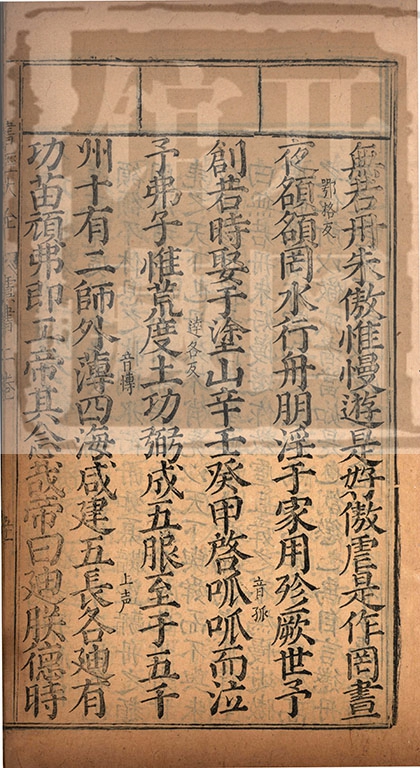 無若丹朱傲惟慢遊是好傲虐是作罔晝
夜頟頟罔水行舟朋淫于家用殄厥世予
鄂格反
創若時娶于塗山辛壬癸甲啓呱呱而泣
音孤
予弗子惟荒度土功弼成五服至于五千
達各反
州十有二師外薄四海咸建五長各迪有
音博
上声
功苗頑弗即工帝其念哉帝曰迪朕德時